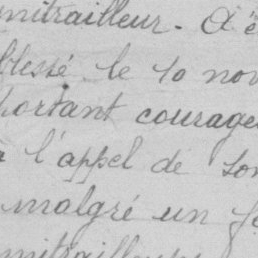 mitrailleur. A é
blessé le 10 nov
portant courage
à l'appel de son
malgré un f
mitrailleu